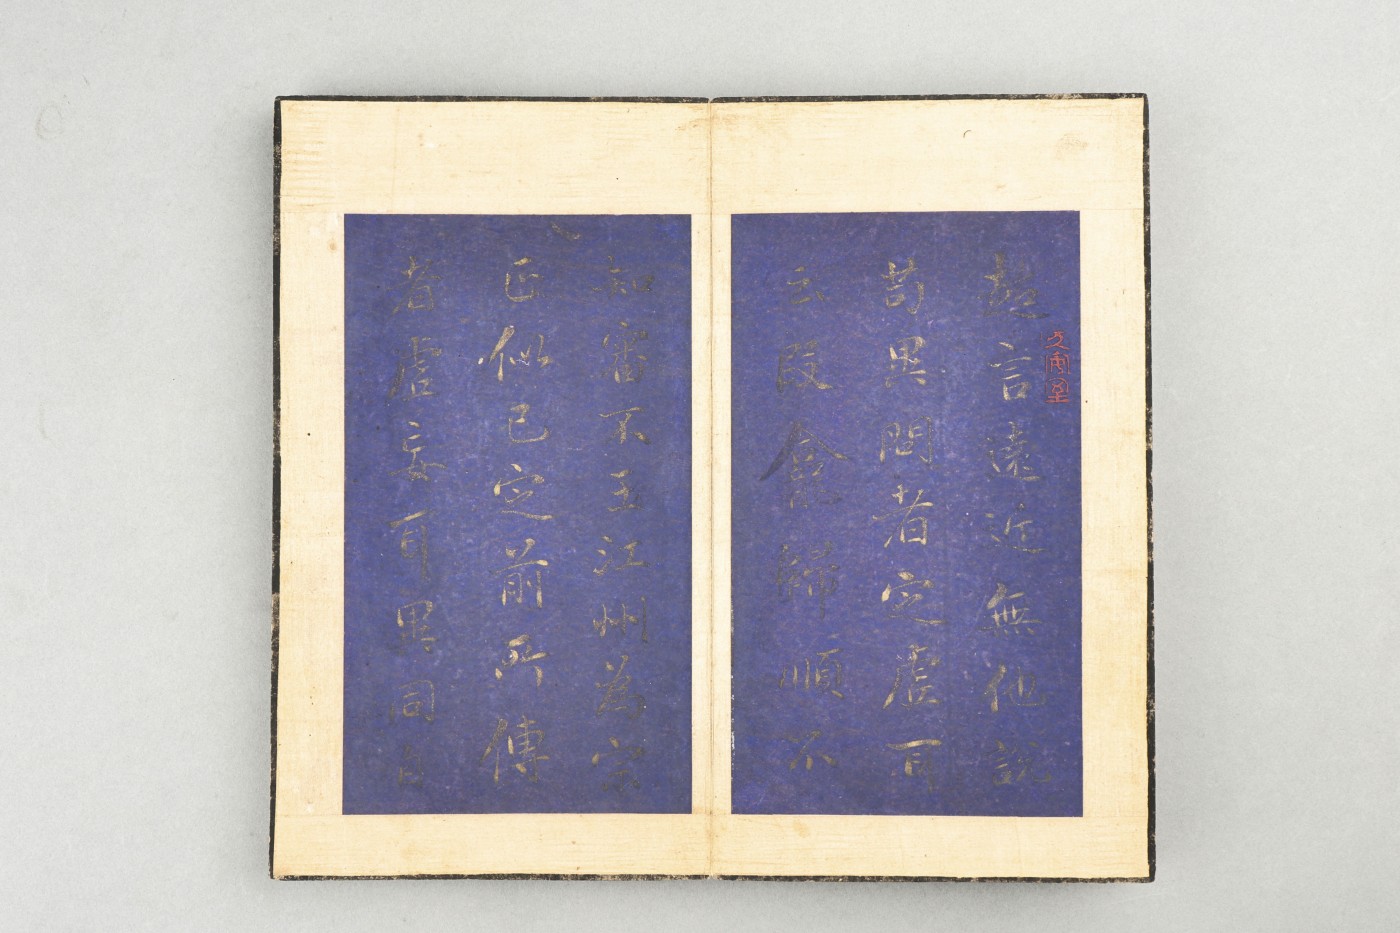 超言遠近無他說
苟異問者定虛耳
云段龕歸順不
知審不王江州為宗
正似已定前所傳
者虛妄耳異同自